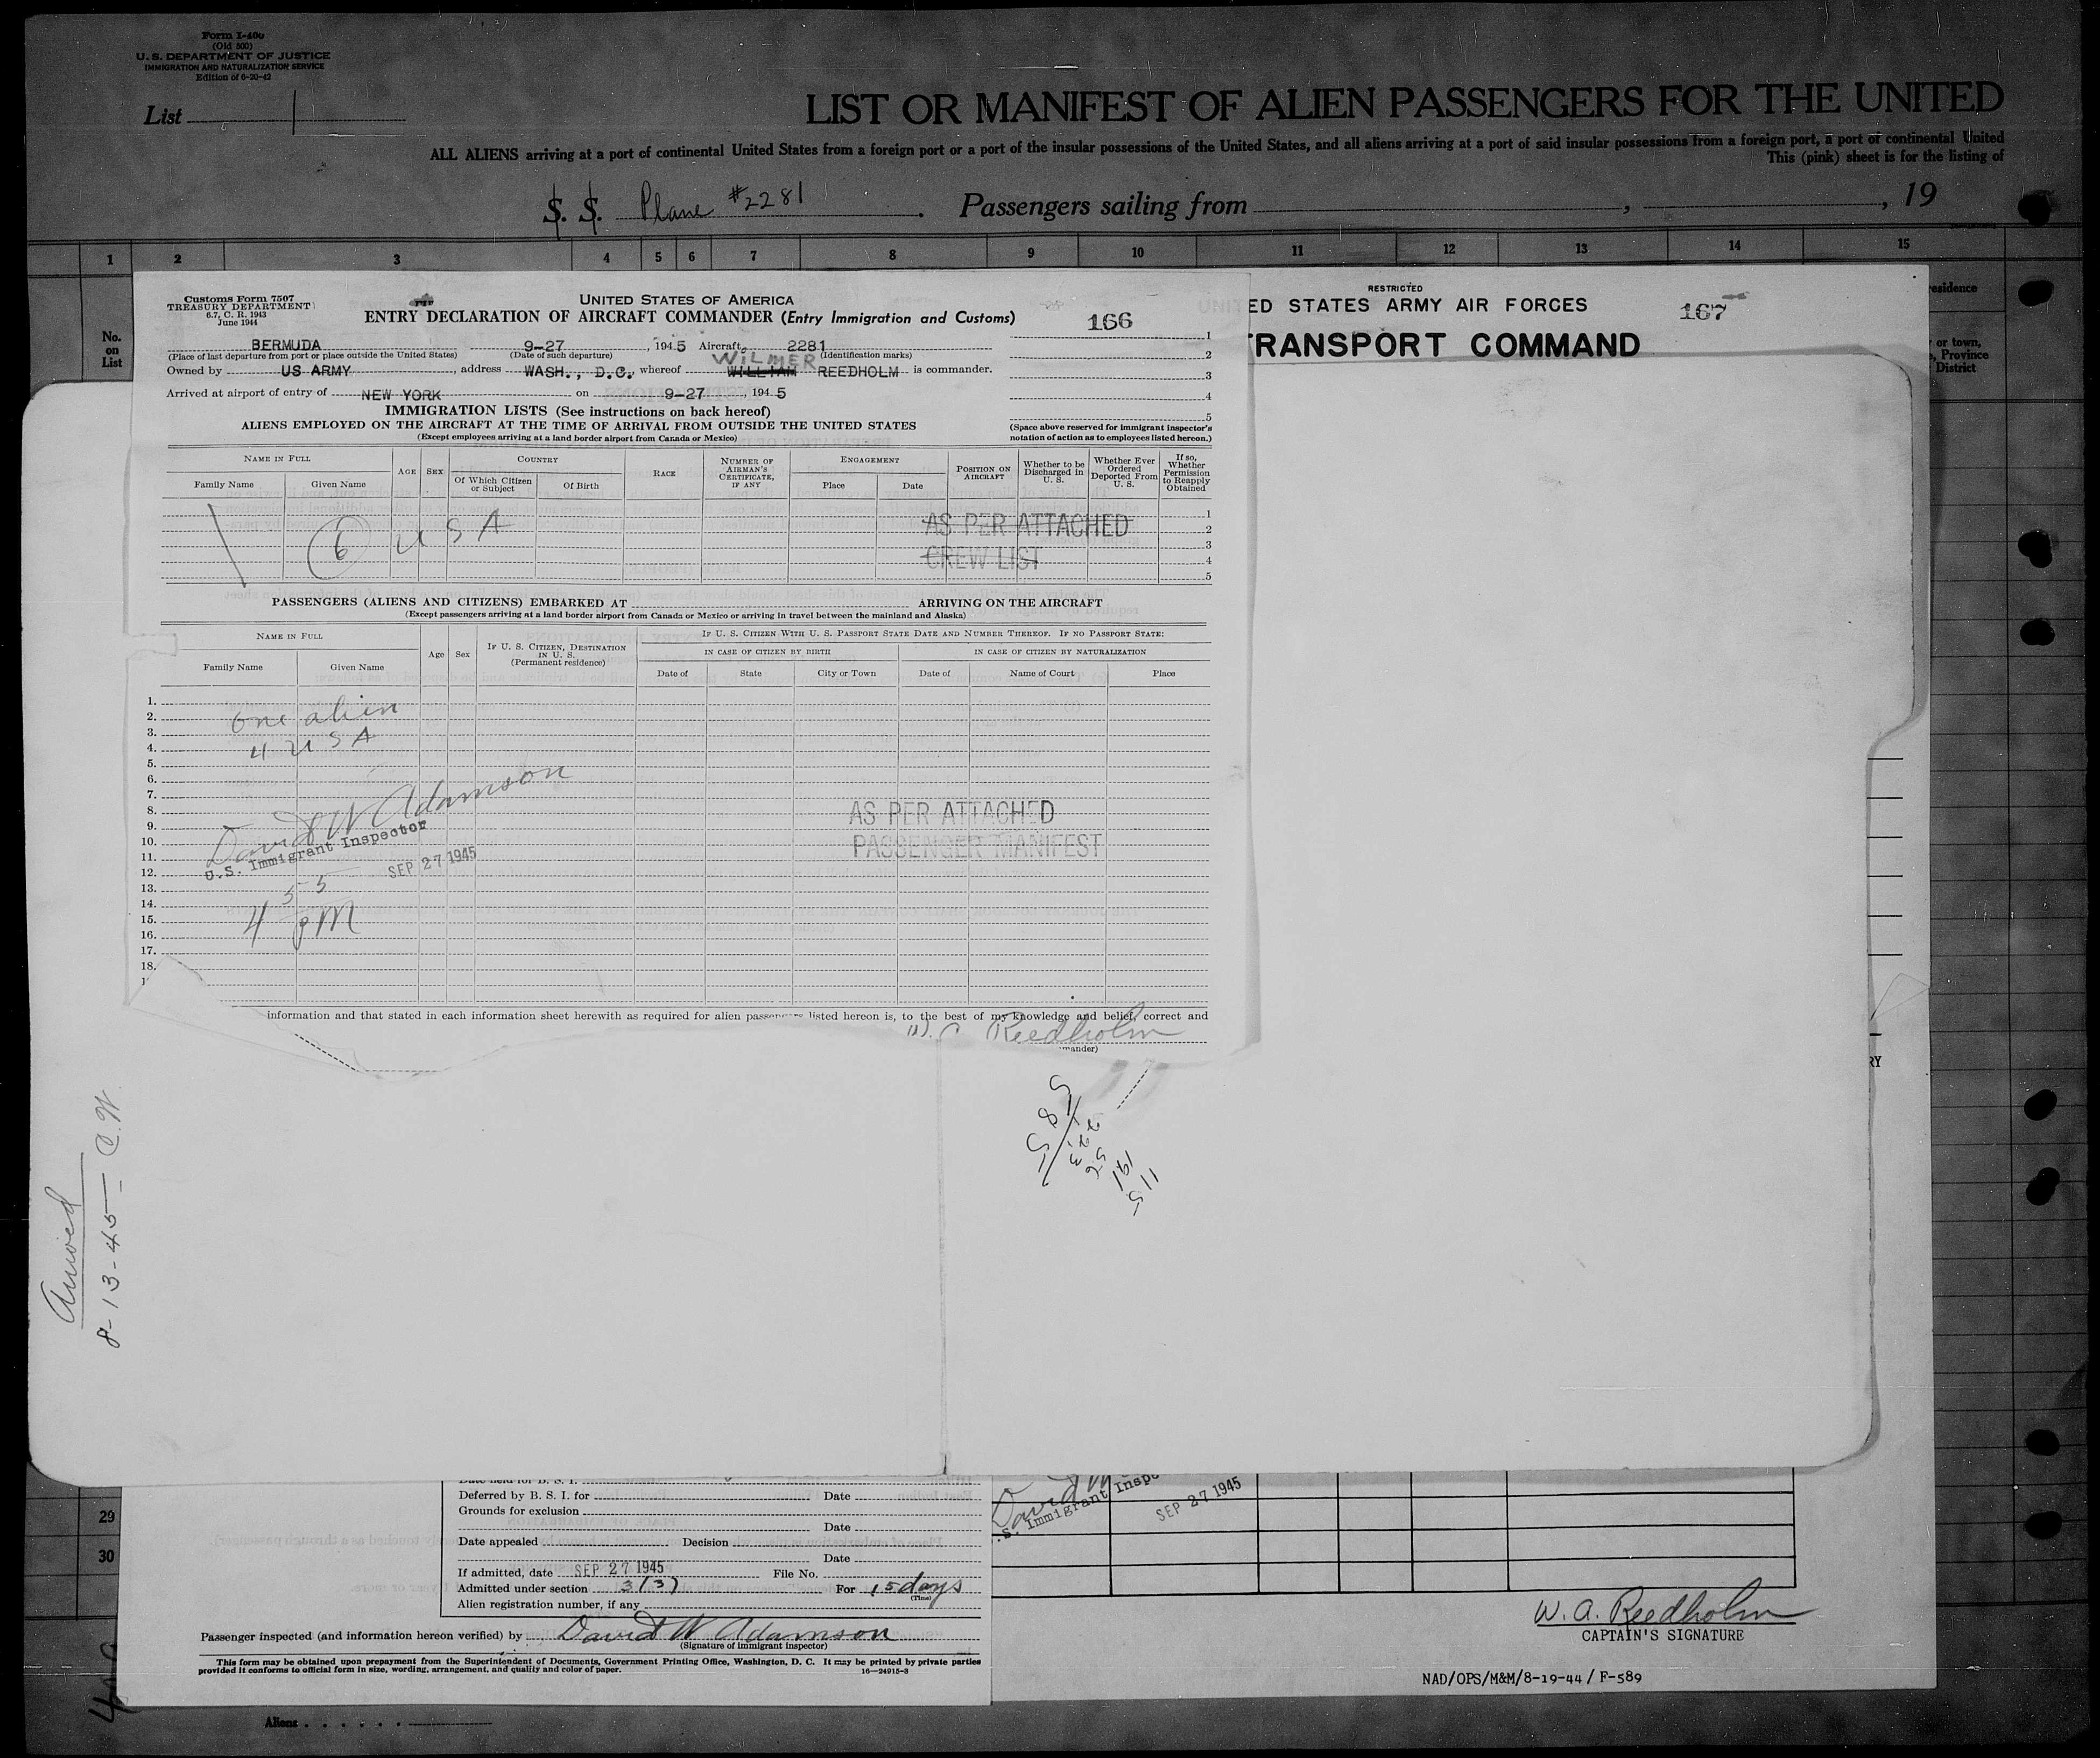 Form I-400
(Old 500)
U. S. DEPARTMENT OF JUSTICE
IMMIGRATION AND NATURALIZATION SERVICE
Edition of 6-20-42
List 1
LIST OR MANIFEST OF ALIEN PASSENGERS FOR THE UNITED
ALL ALIENS arriving at a port of continental United States from a foreign port or a port of the insular possessions of the United States, and all aliens arriving at a port of said insular possessions from a foreign port, a port of continental United
This (pink) sheet is for the listing of
S. S. Plane #2281 . Passengers sailing from , , 19
1 2 3 4 5 6 7 8 9 10 11 12 13 14 15
No. on List
esidence
or town,
, Province
District
Customs Form 7507
TREASURY DEPARTMENT
6.7, C. R. 1943
June 1944
UNITED STATES OF AMERICA
ENTRY DECLARATION OF AIRCRAFT COMMANDER (Entry Immigration and Customs)
166
BERMUDA 9-27 , 1945 Aircraft, 2281
(Place of last departure from port or place outside the United States) (Date of such departure) (Identification marks)
WILMER
Owned by US ARMY , address WASH., D.C., whereof WILLIAM REEDHOLM is commander.
Arrived at airport of entry of NEW YORK on 9-27 , 1945
IMMIGRATION LISTS (See instructions on back hereof)
ALIENS EMPLOYED ON THE AIRCRAFT AT THE TIME OF ARRIVAL FROM OUTSIDE THE UNITED STATES
(Except employees arriving at a land border airport from Canada or Mexico)
1
2
3
4
5
(Space above reserved for immigrant inspector's
notation of action as to employees listed hereon.)
NAME IN FULL
Family Name Given Name
AGE SEX
COUNTRY
Of Which Citizen or Subject Of Birth
RACE
NUMBER OF AIRMAN'S CERTIFICATE, IF ANY
ENGAGEMENT
Place Date
POSITION ON AIRCRAFT
Whether to be Discharged in U. S.
Whether Ever Ordered Deported From U. S.
If so, Whether Permission to Reapply Obtained
6 U S A
AS PER ATTACHED
CREW LIST
1
2
3
4
5
PASSENGERS (ALIENS AND CITIZENS) EMBARKED AT ARRIVING ON THE AIRCRAFT
(Except passengers arriving at a land border airport from Canada or Mexico or arriving in travel between the mainland and Alaska)
NAME IN FULL
Family Name Given Name
Age Sex
IF U. S. CITIZEN, DESTINATION IN U. S.
(Permanent residence)
IF U. S. CITIZEN WITH U. S. PASSPORT STATE DATE AND NUMBER THEREOF. IF NO PASSPORT STATE:
IN CASE OF CITIZEN BY BIRTH IN CASE OF CITIZEN BY NATURALIZATION
Date of State City or Town Date of Name of Court Place
1.
2. One alien
3.
4. 4 U S A
5.
6.
7.
8.
9.
10.
11.
12.
13.
14.
15.
16.
17.
18.
David W Adamson
U.S. Immigrant Inspector
SEP 27 1945
4 55 PM
AS PER ATTACHED
PASSENGER MANIFEST
information and that stated in each information sheet herewith as required for alien passengers listed hereon is, to the best of my knowledge and belief, correct and
Reedholm
mander)
RESTRICTED
ED STATES ARMY AIR FORCES
167
TRANSPORT COMMAND
RY
Arrived
8-13-45- C.W.
29
30
Deferred by B. S. I. for Date
Grounds for exclusion
Date
Date appealed Decision
Date
If admitted, date SEP 27 1945 File No.
Admitted under section 3(3) For 15 days
(Time)
Alien registration number, if any
Passenger inspected (and information hereon verified) by David W Adamson
(Signature of immigrant inspector)
This form may be obtained upon prepayment from the Superintendent of Documents, Government Printing Office, Washington, D. C. It may be printed by private parties
provided it conforms to official form in size, wording, arrangement, and quality and color of paper. 16-24915-3
Aliens
David W
S. Immigrant Inspe
SEP 27 1945
W. A. Reedholm
CAPTAIN'S SIGNATURE
NAD/OPS/M&M/8-19-44 / F-589